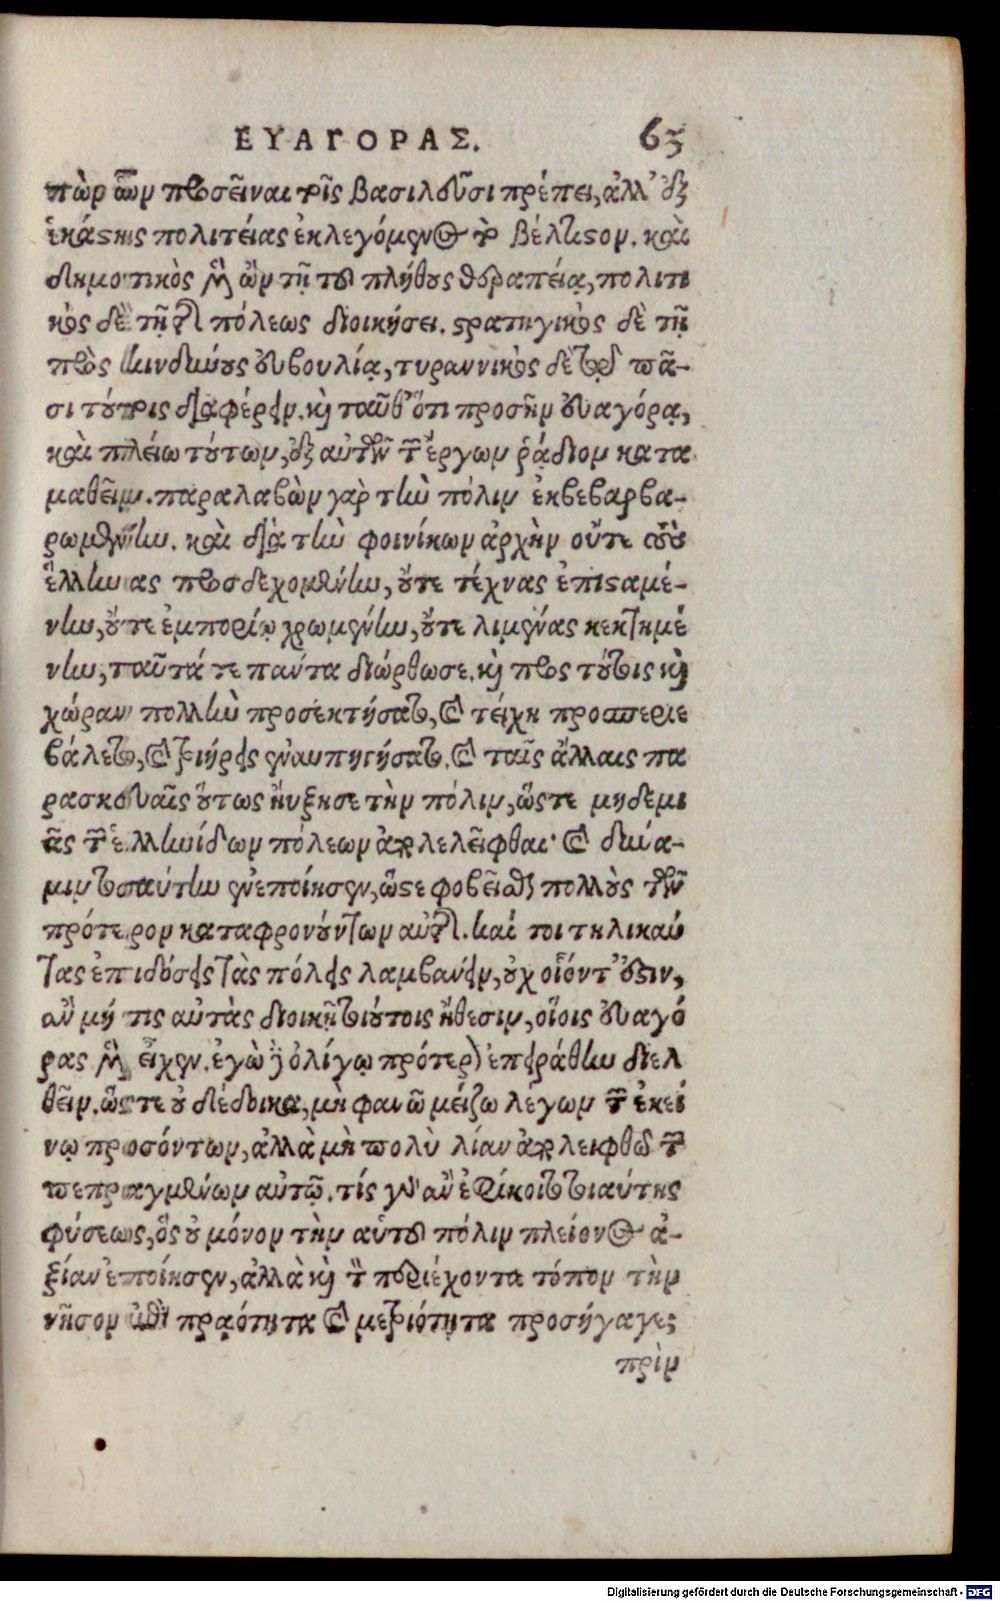 ΕΥΑΓΟΡΑΣ. 65
πὼρ ὧν προσεῖναι τοῖς βασιλεῦσι πρέπει, ἀλλ' ἐξ
ἑκάστης πολιτείας ἐκλεγόμενος τὸ βέλτιστον. καὶ
δημοτικὸς μὲν ὢν τῇ τοῦ πλήθους θεραπείᾳ, πολιτι
κὸς δὲ τῇ τῆς πόλεως διοικήσει. στρατηγικὸς δὲ τῇ
πρὸς κινδύνους εὐβουλίᾳ, τυραννικὸς δὲ τῷ πᾶ-
σι τούτοις διαφέρειν. καὶ ταῦθ' ὅτι προσῆν εὐαγόρᾳ,
καὶ πλείω τούτων, ἐξ αὐτῶν τῶν ἔργων ῥᾴδιον κατα
μαθεῖν. παραλαβὼν γὰρ τὴν πόλιν ἐκβεβαρβα-
ρωμένην. καὶ διὰ τὴν φοινίκων ἀρχὴν οὔτε τοὺς
ἕλληνας προσδεχομένην, οὔτε τέχνας ἐπισταμέ-
νην, οὔτε ἐμπορίῳ χρωμένην, οὔτε λιμένας κεκτημέ
νην, ταῦτά τε πάντα διώρθωσε. καὶ πρὸς τούτοις καὶ
χώραν πολλὴν προσεκτήσατο, καὶ τείχη προσπεριε
βάλετο, καὶ τριήρεις ἐναυπηγήσατο. καὶ ταῖς ἄλλαις πα
ρασκευαῖς οὕτως ηὔξησε τὴν πόλιν, ὥστε μηδεμι
ᾶς τῶν ἑλληνίδων πόλεων ἀπολελεῖφθαι· καὶ δύνα-
μιν τοσαύτην ἐνεποίησεν, ὥστε φοβεῖσθαι πολλοὺς τῶν
πρότερον καταφρονούντων αὐτῆς. καί τοι τηλικαύ
τας ἐπιδόσεις τὰς πόλεις λαμβάνειν, οὐχ οἷόντ' ἐστιν,
ἂν μή τις αὐτὰς διοικῇ τοιούτοις ἤθεσιν, οἵοις εὐαγό
ρας μὲν εἶχεν. ἐγὼ δ' ὀλίγῳ πρότερον ἐπειράθην διελ
θεῖν. ὥστε οὐ δέδοικα, μὴ φανῶ μείζω λέγων τῶν ἐκεί
νῳ προσόντων, ἀλλὰ μὴ πολὺ λίαν ἀπολειφθῶ τῶν
πεπραγμένων αὐτῷ. τίς γὰρ ἂν ἐφίκοιτο τοιαύτης
φύσεως, ὃς οὐ μόνον τὴν αὑτοῦ πόλιν πλείονος ἀ-
ξίαν ἐποίησεν, ἀλλὰ καὶ τὸν περιέχοντα τόπον τὴν
νῆσον ἐπὶ πραότητα καὶ μετριότητα προσήγαγε;
πρὶν
Digitalisierung gefördert durch die Deutsche Forschungsgemeinschaft - DFG